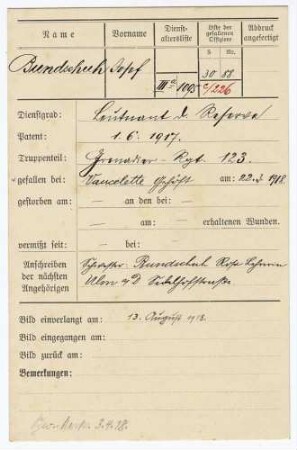 Name Vorname Dienst-altersliste Liste der gefallenen Offiziere Abdruck angefertigt
S. Nr.
Bundschuh Josef III 1095 30 88
c/226
Dienstgrad: Leutnant d. Reserve
Patent: 1.6.1917.
Truppenteil: Grenadier-Rgt. 123.
gefallen bei: Vaucelette Gehöft am: 22.3.1918.
gestorben am: — an den bei: —
— am: — erhaltenen Wunden.
vermißt seit: — bei: —
Anschreiben der nächsten Angehörigen Schwester: Bundschuh Rosa
Ulm a/D
Bild einverlangt am: 13. August 1918.
Bild eingegangen am:
Bild zurück am:
Bemerkungen:
3.4.28.